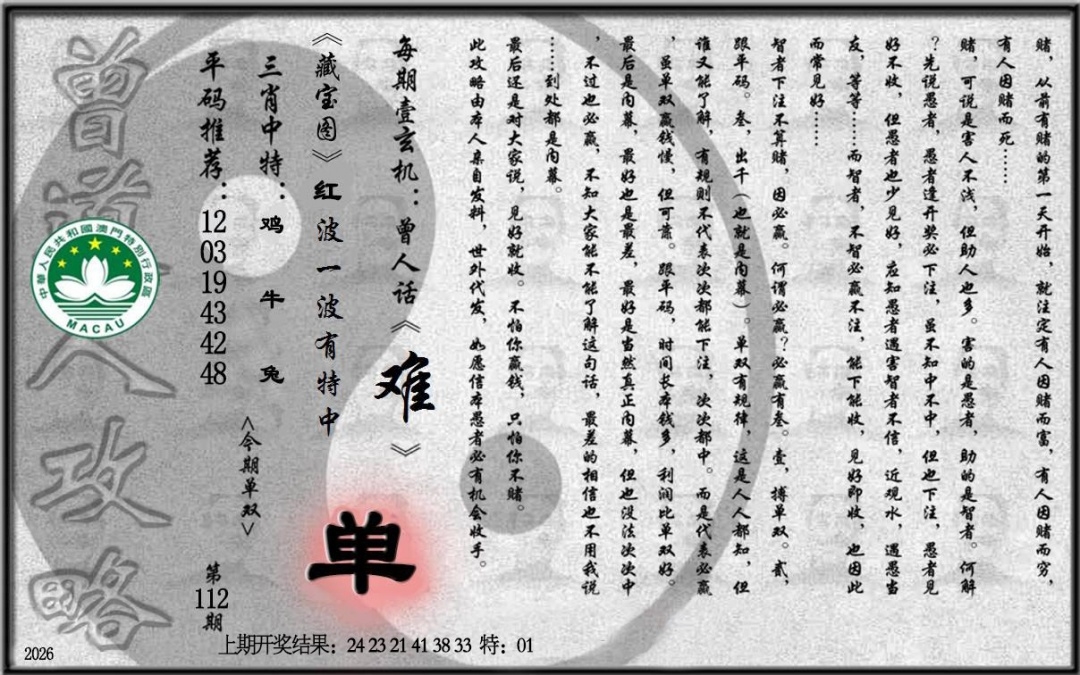 赌，从前有赌的第一天开始，就注定有人因赌而富，有人因赌而穷，
有人因赌而死……
赌，可说是害人不浅，但助人也多。害的是愚者，助的是智者。何解
？先说愚者，愚者逢开奖必下注，虽不知中不中，但也下注，愚者见
好不收，但愚者也少见好，应知愚者遇害智者不信，近观水，遇愚当
友，等等……而智者，不智必赢不注，能下能收，见好即收，也因此
而常见好……
智者下注不算赌，因必赢。何谓必赢？必赢有叁。壹，搏单双。贰，
跟平码。叁，出千（也就是内幕）。单双有规律，这是人人都知，但
谁又能了解，有规则不代表次次都能下注，次次都中。而是代表必赢
，虽单双赢钱慢，但可靠。跟平码，时间长本钱多，利润比单双好。
最后是内幕，最好也是最差，最好是当然真正内幕，但也没法次次中
，不过也必赢，不知大家能不能了解这句话，最差的相信也不用我说
……到处都是内幕。
最后还是对大家说，见好就收。不怕你赢钱，只怕你不赌。
此攻略由本人亲自发料，世外代发，如愿信本愚者必有机会收手。
每期壹玄机：曾人话《难》
《藏宝图》红波一波有特中
单
<今期单双>
三肖中特：鸡 牛 兔
平码推荐：12 03 19 43 42 48
第112期
曾道人攻略
中華人民共和國澳門特別行政區
MACAU
上期开奖结果：24 23 21 41 38 33 特：01
2026